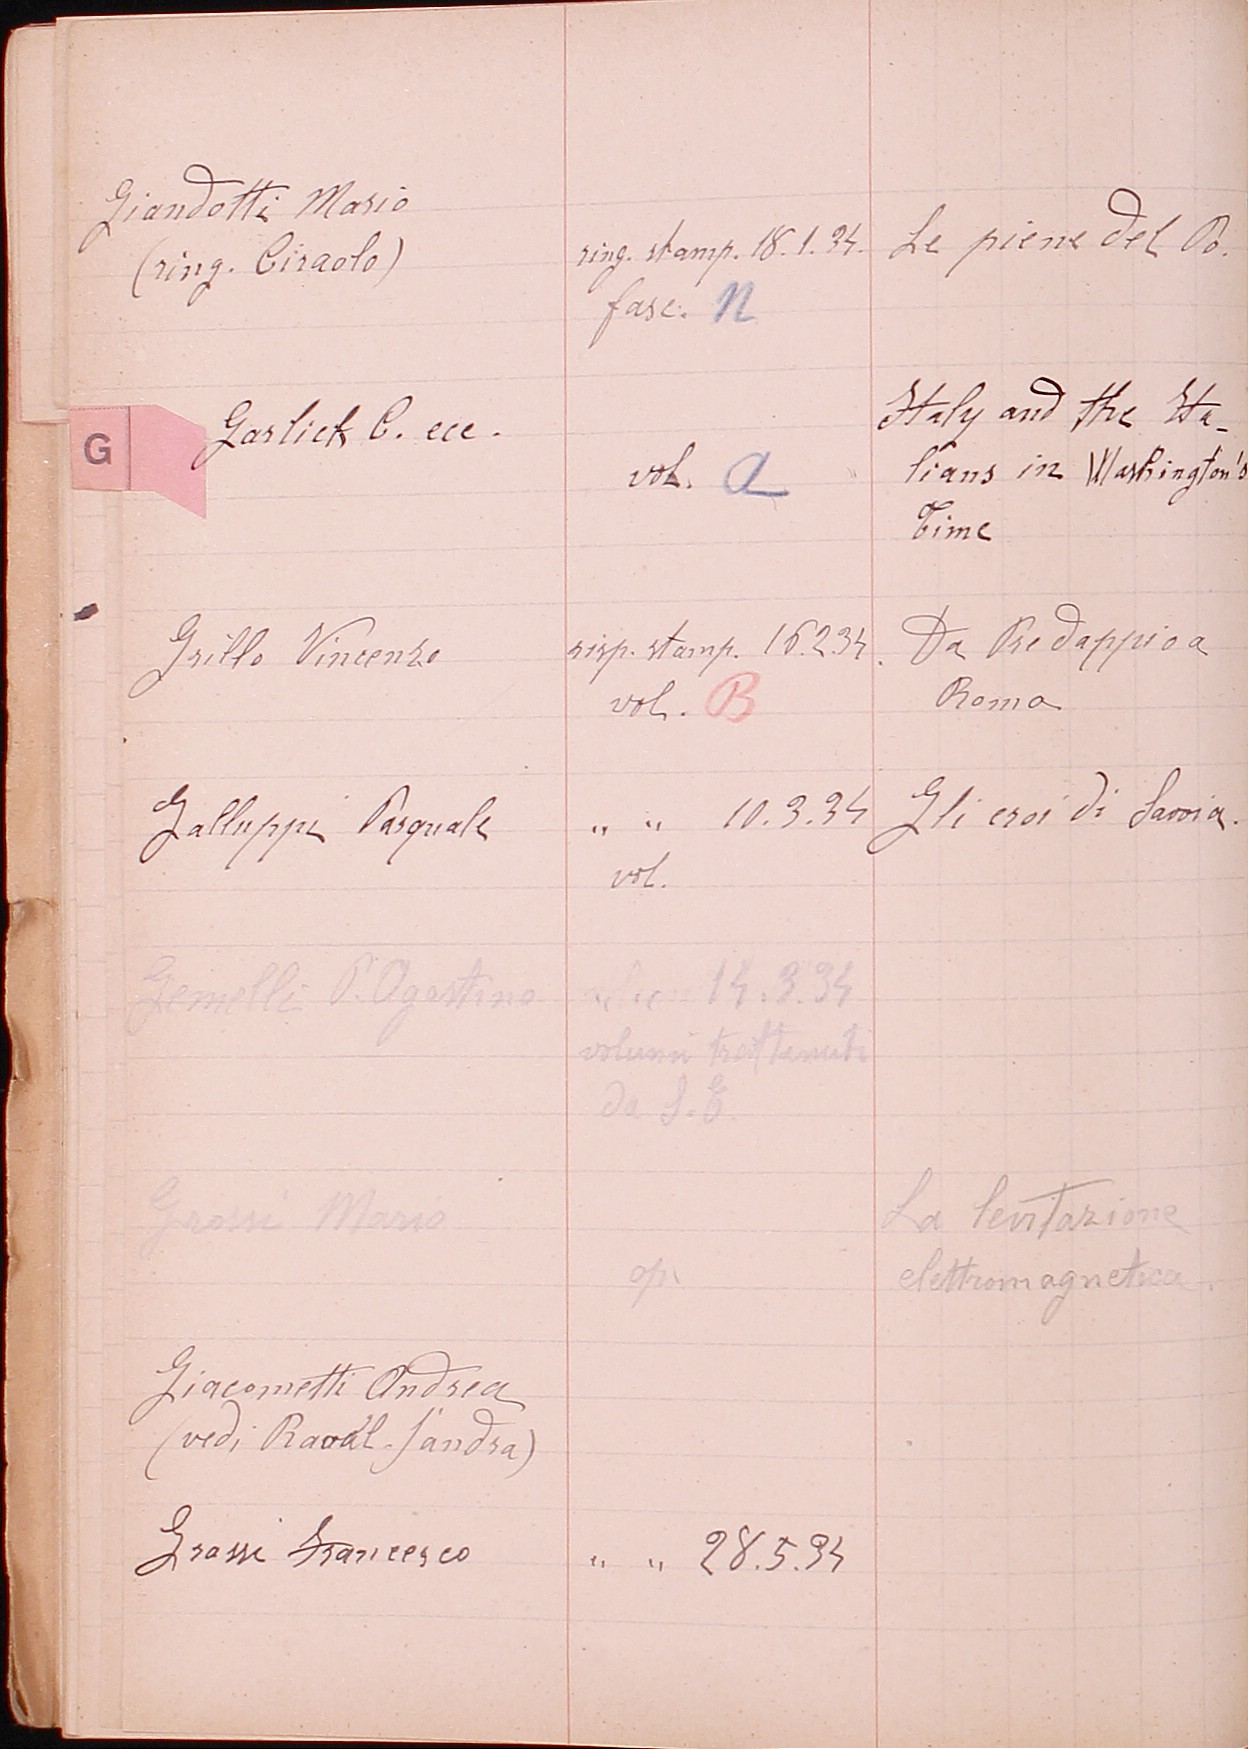 Giandotti Mario
(ring. Ciraolo)
ring. stamp. 18.1.34.
fasc. N
Le piene del Po.
G
Garlick C. ecc.
vol. A
Italy and the Ita-
lians in Washington's
Time
Grillo Vincenzo
risp. stamp. 16.2.34.
vol. B
Da Predappio a
Roma
Galluppi Pasquale
" " 10.3.34
vol.
Gli eroi di Savoia.
Gemelli P. Agostino
14.3.34
volumi trattenuti
da S.E.
Grossi Mario
op.
La levitazione
elettromagnetica.
Giacometti Andrea
(vedi Raval Sandra)
Grossi Francesco
" " 28.5.34